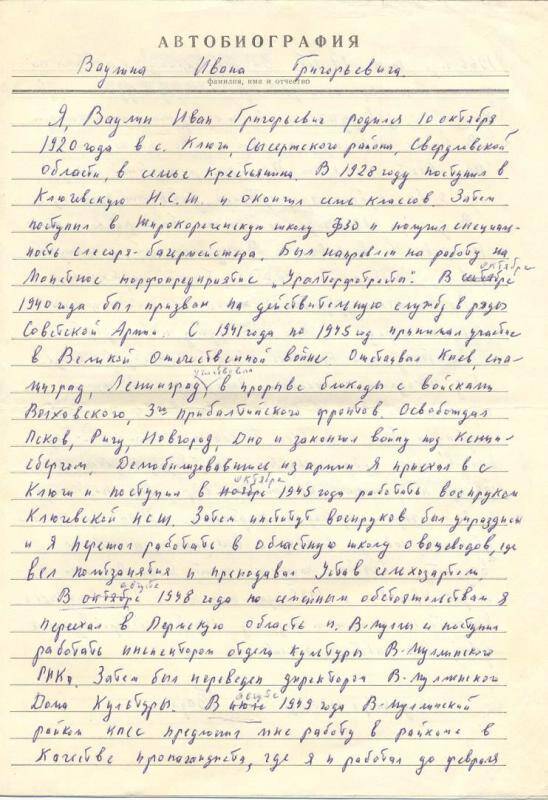 АВТОБИОГРАФИЯ
Ваулина Ивана Григорьевича.
фамилия, имя и отчество
Я, Ваулин Иван Григорьевич родился 10 октября
1920 года в с. Ключи, Сысертского района, Свердловской
области, в семье крестьянина. В 1928 году поступил в
Ключевскую Н.С.Ш. и окончил семь классов. Затем
поступил в Широкореченскую школу ФЗО и получил специаль-
ность слесаря-багермейстера. Был направлен на работу на
Монетное торфопредприятие „Уралторфотреста". В октябре
1940 года был призван на действительную службу в ряды
Советской Армии. С 1941 года по 1945 год принимал участие
в Великой Отечественной войне. Отстаивал Киев, Ста-
линград, Ленинград участвовал в прорыве блокады с войсками
Волховского, 3го Прибалтийского фронтов. Освобождал
Псков, Ригу, Новгород, Дно и закончил войну под Кениг-
сбергом. Демобилизовавшись из армии Я приехал в с
Ключи и поступил в октябре 1945 года работать военруком
Ключевской НСШ. Затем институт военруков был упразднен
и я перешол работать в областную школу овощеводов, где
вел политзанятия и преподавал Устав сельхозартели.
В августе октябре 1948 года по семейным обстоятельствам я
переехал в Пермскую область п. В-Муллы и поступил
работать инспектором отдела культуры В-Муллинского
РИКа. Затем был переведен директором В-Муллинского
Дома Культуры. В августе июле 1949 года В-Муллинский
райком КПСС предложил мне работу в райкоме в
качестве пропагандиста, где я и работал до февраля